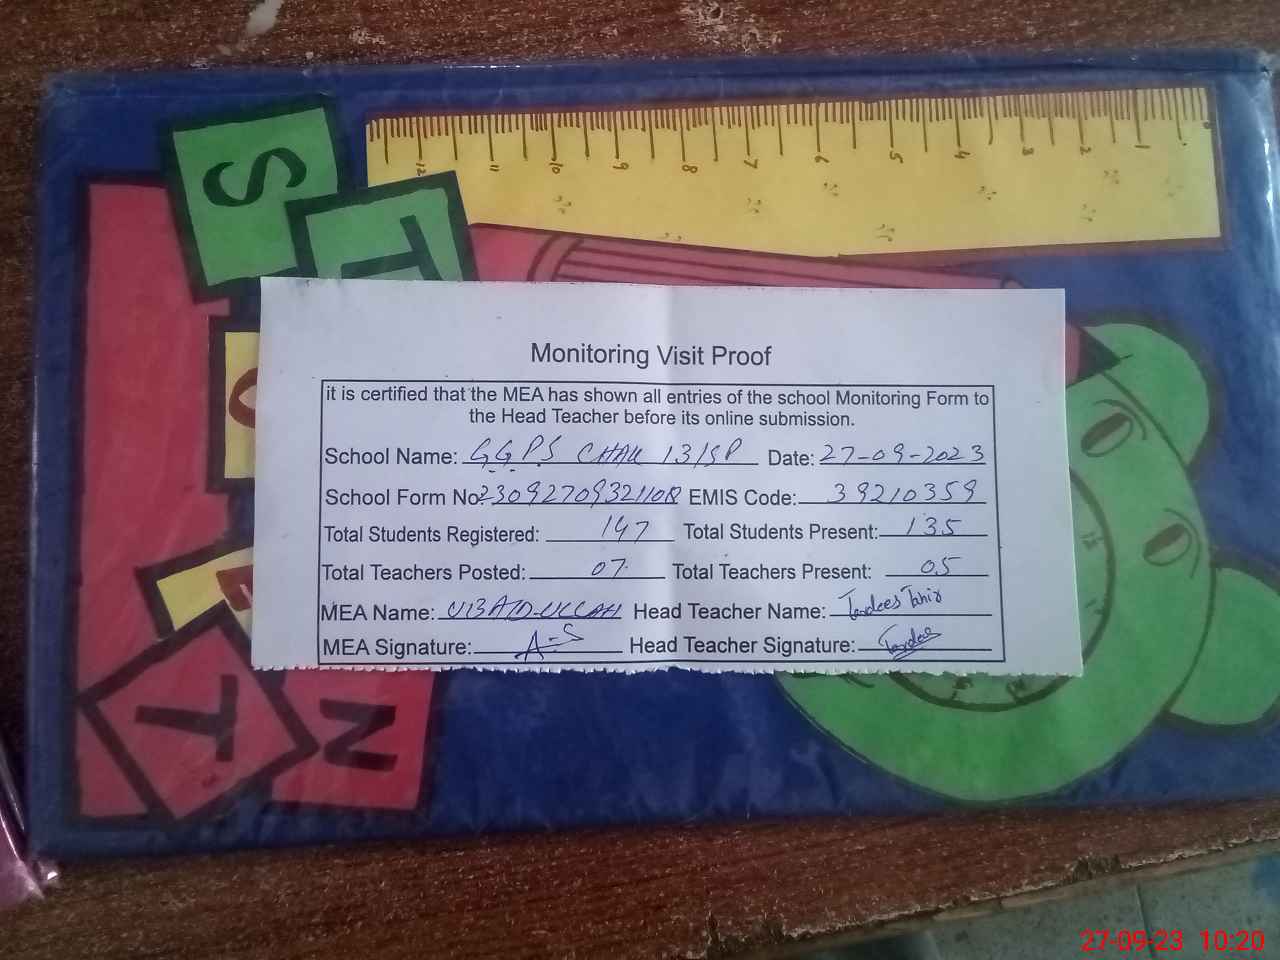 S
T
12 11 10 9 8 7 6 5 4 3 2 1
Monitoring Visit Proof
it is certified that the MEA has shown all entries of the school Monitoring Form to
the Head Teacher before its online submission.
School Name: GGPS CHAK 13/SP Date: 27-09-2023
School Form No. EMIS Code: 39210359
Total Students Registered: 147 Total Students Present: 135
Total Teachers Posted: 07 Total Teachers Present: 05
MEA Name: UBAID-ULLAH Head Teacher Name: Tahir
MEA Signature: Head Teacher Signature:
Y
N
27-09-23 10:20